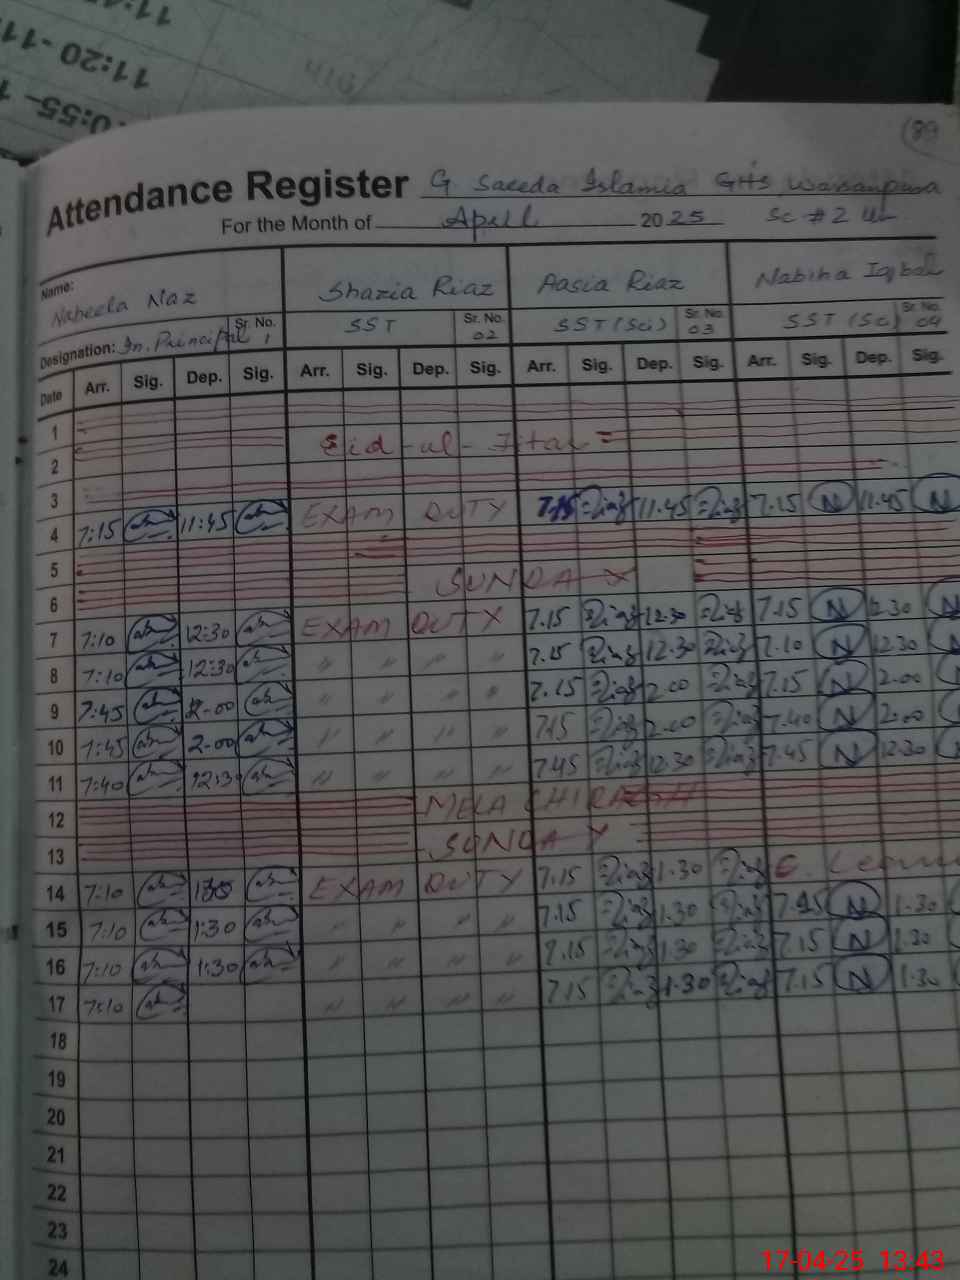 11:20-11:
Attendance Register G. Saeeda Islamia GHS Wasanpura
For the Month of April 2025 Sc #2
Name: Nabeela Naz Shazia Riaz Aasia Riaz Nabiha Iqbal
Designation: In. Principal Sr. No. 1 SST Sr. No. 02 SST (Sci) Sr. No. 03 SST (Sci) Sr. No. 04
Date Arr. Sig. Dep. Sig. Arr. Sig. Dep. Sig. Arr. Sig. Dep. Sig. Arr. Sig. Dep. Sig.
1
2 Eid-ul-Fitar
3
4 7:15 11:45 EXAM DUTY 7.15 11.45 7.15 N 11.45 N
5
6 SUNDAY
7 7:10 12:30 EXAM DUTY 7.15 12.30 7.15 N 12.30 N
8 7:10 12:30 " " " " 7.15 12.30 7.10 N 12.30 N
9 7:45 2-00 " " " " 7.15 2.00 7.15 N 2.00
10 7:45 2-00 " " " " 7.15 2.00 7.40 N 2.00
11 7:40 12:30 " " " " 7.45 12.30 7.45 N 12.30
12 MELA CHIRAGAH
13 SUNDAY
14 7:10 EXAM DUTY 7.15 1.30
15 7:10 1:30 " " " " 7.15 1.30 N 1.30
16 7:10 1:30 " " " " 7.15 1.30 7.15 N 1.30
17 7:10 " " " " 7.15 1.30 7.15 N 1.30
18
19
20
21
22
23
24
17-04-25 13:43